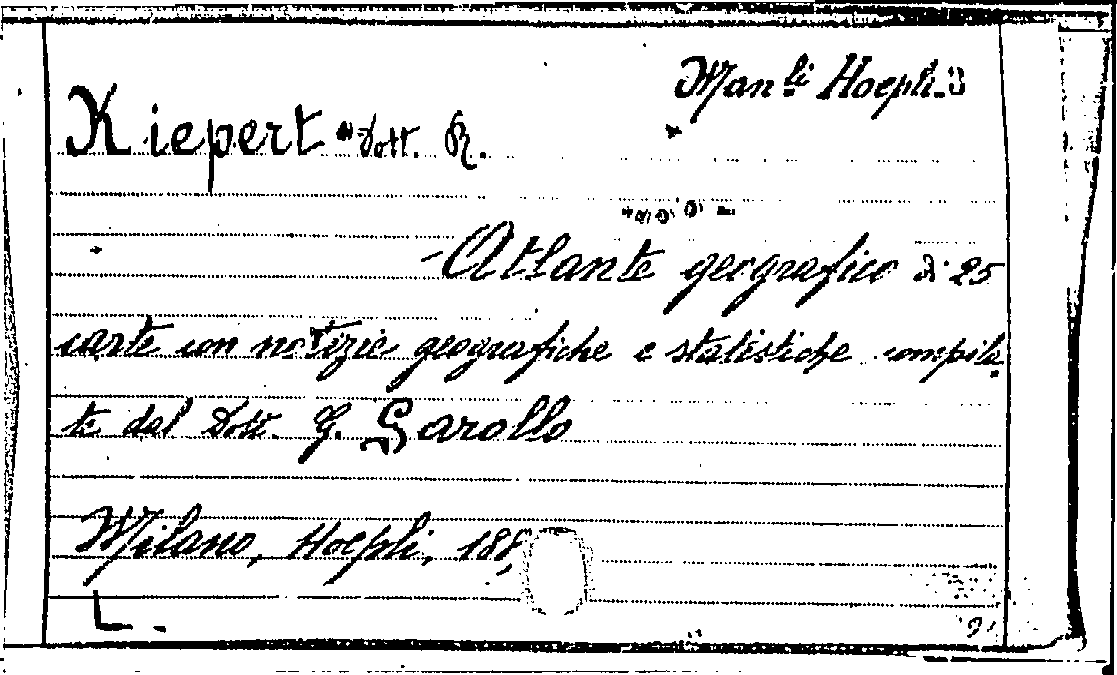 Man.li Hoepli. 3
Kiepert Dott. R.
- Atlante geografico di 25
carte con notizie geografiche e statistiche compila
te dal Dott. G. Garollo
Milano, Hoepli,